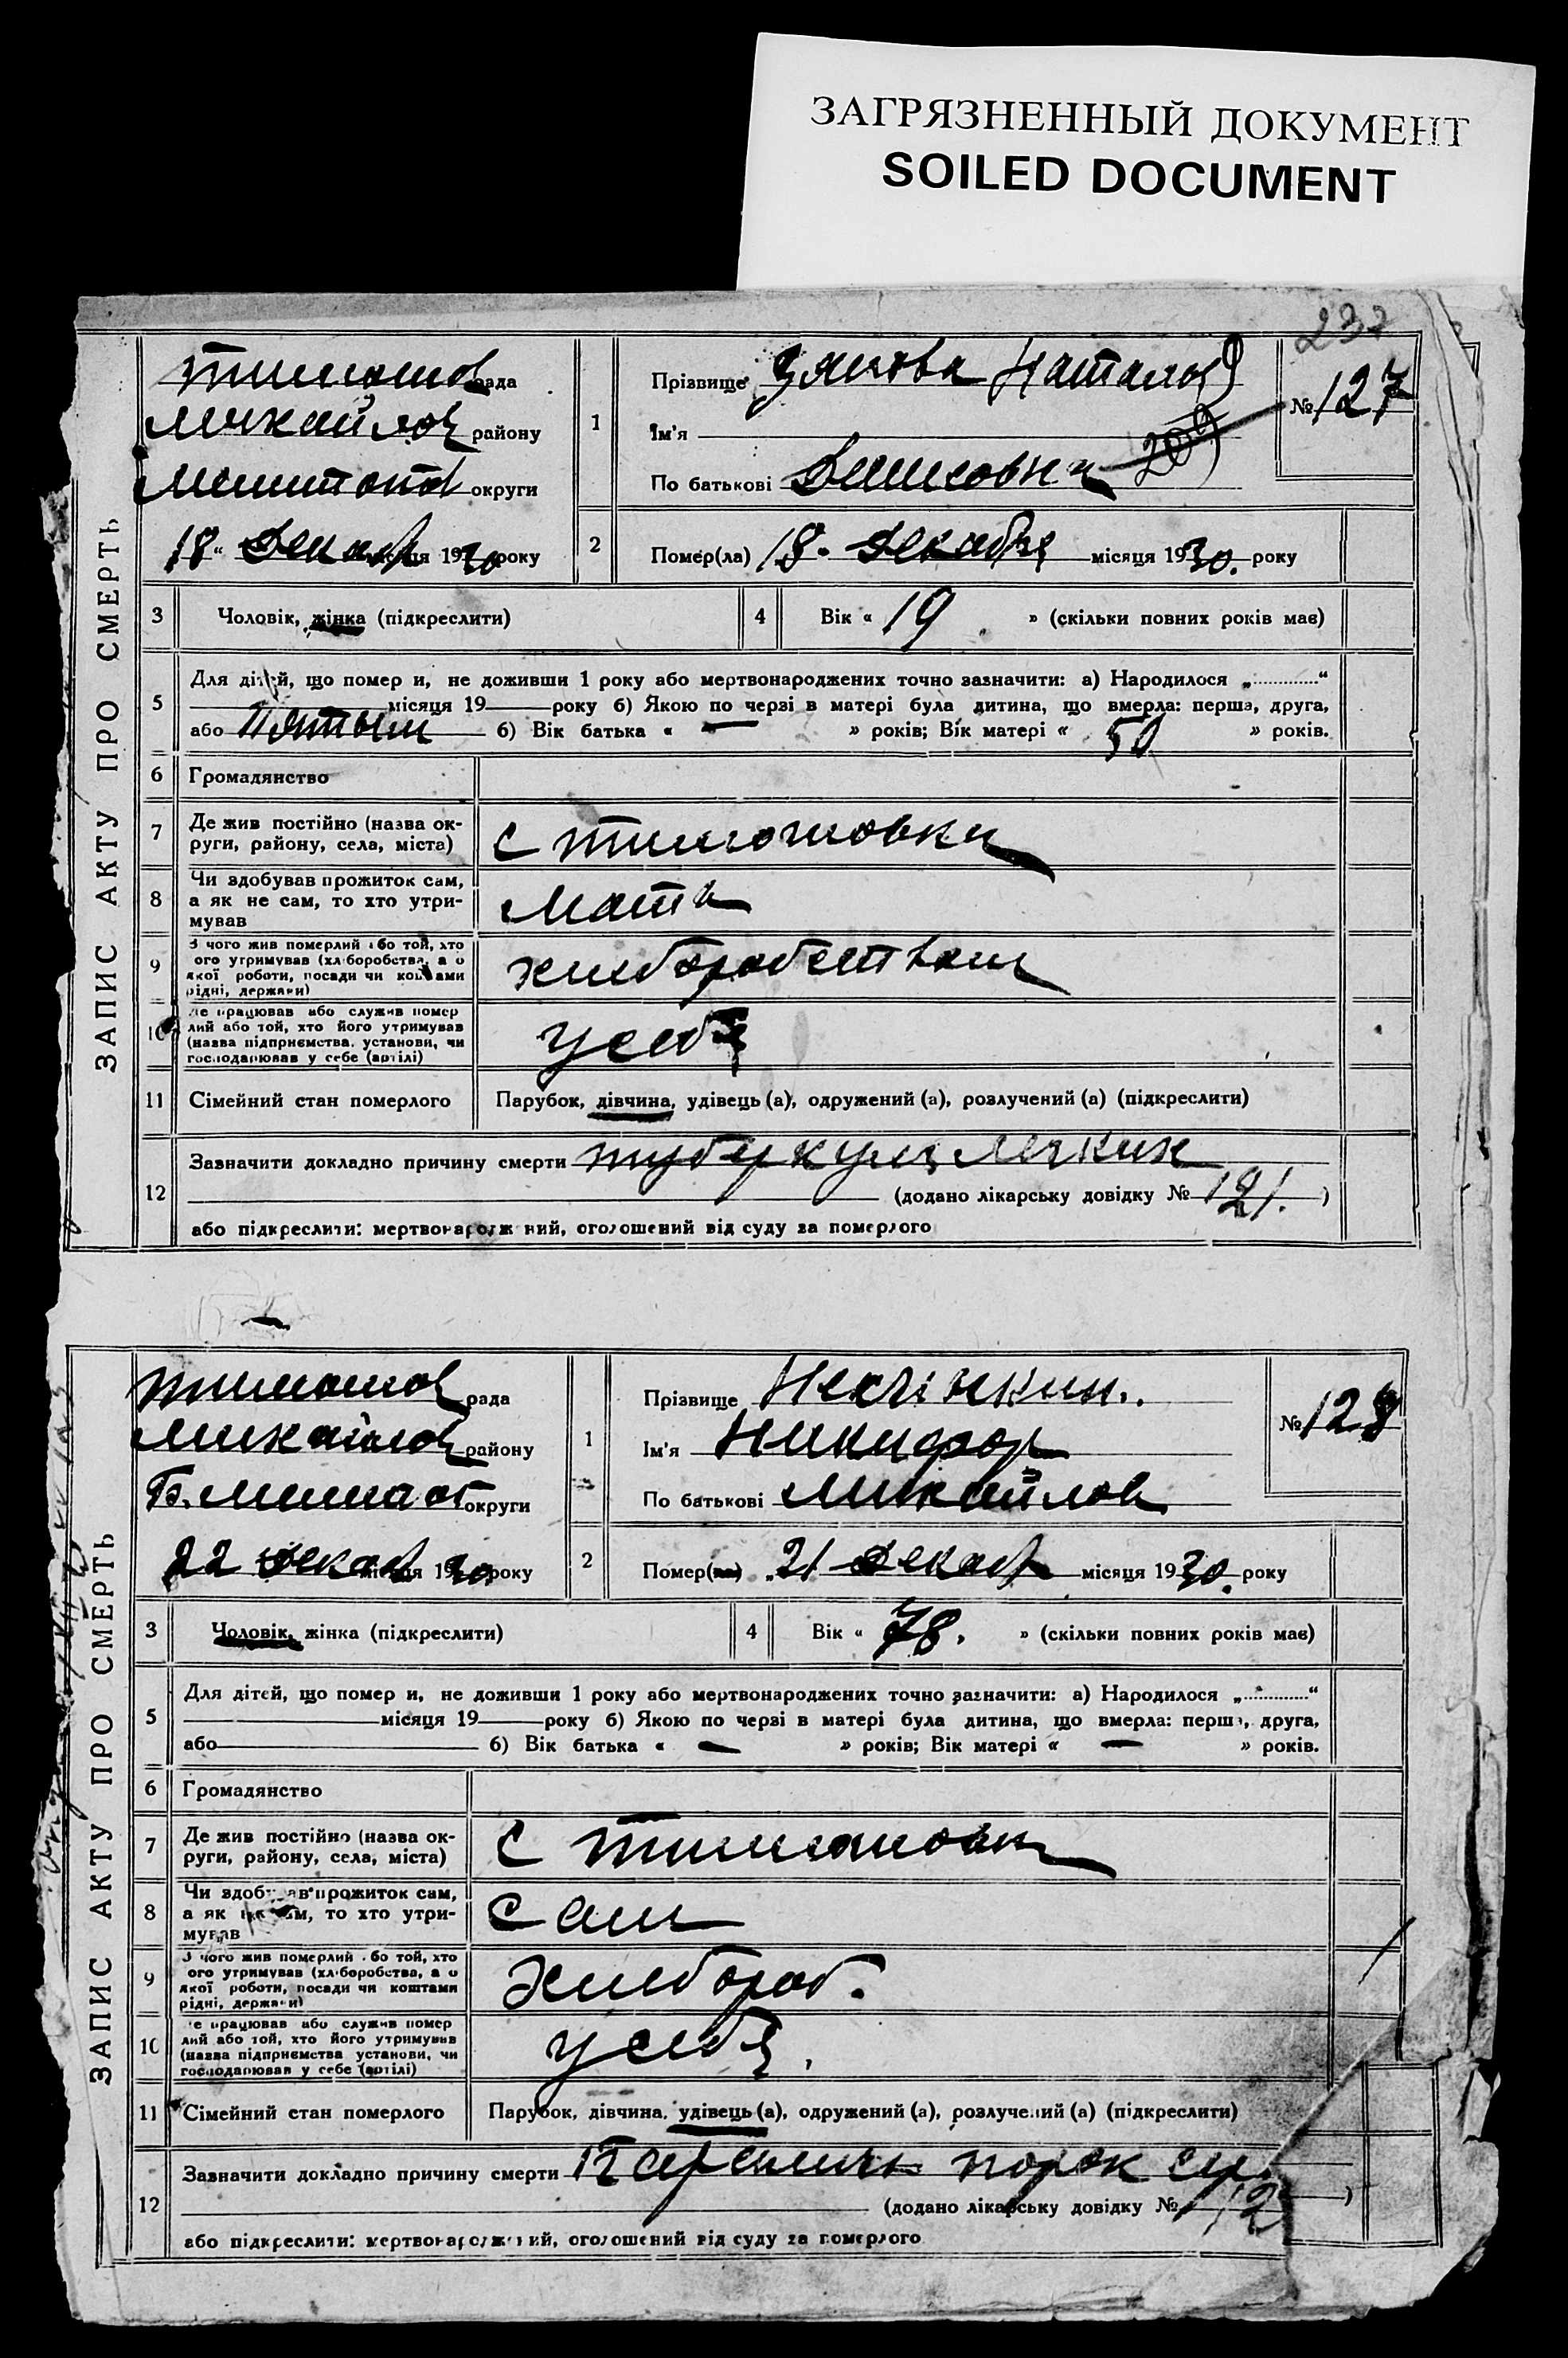 ЗАГРЯЗНЕННЫЙ ДОКУМЕНТ
SOILED DOCUMENT
237
ЗАПИС АКТУ ПРО СМЕРТЬ
Тимошов рада
Михайлов району
округи
18 Декаб місяця 1930 року
1
Прізвище Наталья
Ім'я
По батькові Денисовна 209
№ 127
2
Помер(ла) 18. Декабря місяця 1930. року
3 Чоловік, жінка (підкреслити)
4 Вік « 19 » (скільки повних років має)
5
Для дітей, що помер и, не доживши 1 року або мертвонароджених точно зазначити: а) Народилося „ “
місяця 19 року б) Якою по черзі в матері була дитина, що вмерла: перша, друга,
або Пятым б) Вік батька « — » років; Вік матері « 50 » років.
6 Громадянство
7 Де жив постійно (назва ок-
руги, району, села, міста) с Тимошовки
8 Чи здобував прожиток сам,
а як не сам, то хто утри-
мував Мать
9 З чого жив померлий або той, хто
ого утримував (хліборобства, а о
якої роботи, посади чи коштами
рідні, держави)
10 де працював або служив помер
лий або той, хто його утримував
(назва підприємства, установи, чи
господарював у себе (артілі) у себя
11 Сімейний стан померлого Парубок, дівчина, удівець (а), одружений (а), розлучений (а) (підкреслити)
12
Зазначити докладно причину смерти туберкулез легких
(додано лікарську довідку № 121. )
або підкреслити: мертвонароджений, оголошений від суду за померлого
ЗАПИС АКТУ ПРО СМЕРТЬ
Тимошов рада
Михайлов району
округи
22 Декаб місяця 1930 року
1
Прізвище
Ім'я Никифор
По батькові Михайлов
№ 128
2
Помер(ла) „21 Декаб місяця 1930. року
3 Чоловік, жінка (підкреслити)
4 Вік « 78. » (скільки повних років має)
5
Для дітей, що помер и, не доживши 1 року або мертвонароджених точно зазначити: а) Народилося „ “
місяця 19 року б) Якою по черзі в матері була дитина, що вмерла: перша, друга,
або б) Вік батька « — » років; Вік матері « — » років.
6 Громадянство
7 Де жив постійно (назва ок-
руги, району, села, міста) с Тимошовки
8 Чи здобував прожиток сам,
а як не сам, то хто утри-
мував Сам
9 З чого жив померлий або той, хто
ого утримував (хліборобства, а о
якої роботи, посади чи коштами
рідні, держави) Хлебороб.
10 де працював або служив помер
лий або той, хто його утримував
(назва підприємства установи, чи
господарював у себе (артілі) у себя
11 Сімейний стан померлого Парубок, дівчина, удівець (а), одружений (а), розлучений (а) (підкреслити)
12
Зазначити докладно причину смерти порок сер.
(додано лікарську довідку № )
або підкреслити: мертвонароджений, оголошений від суду за померлого